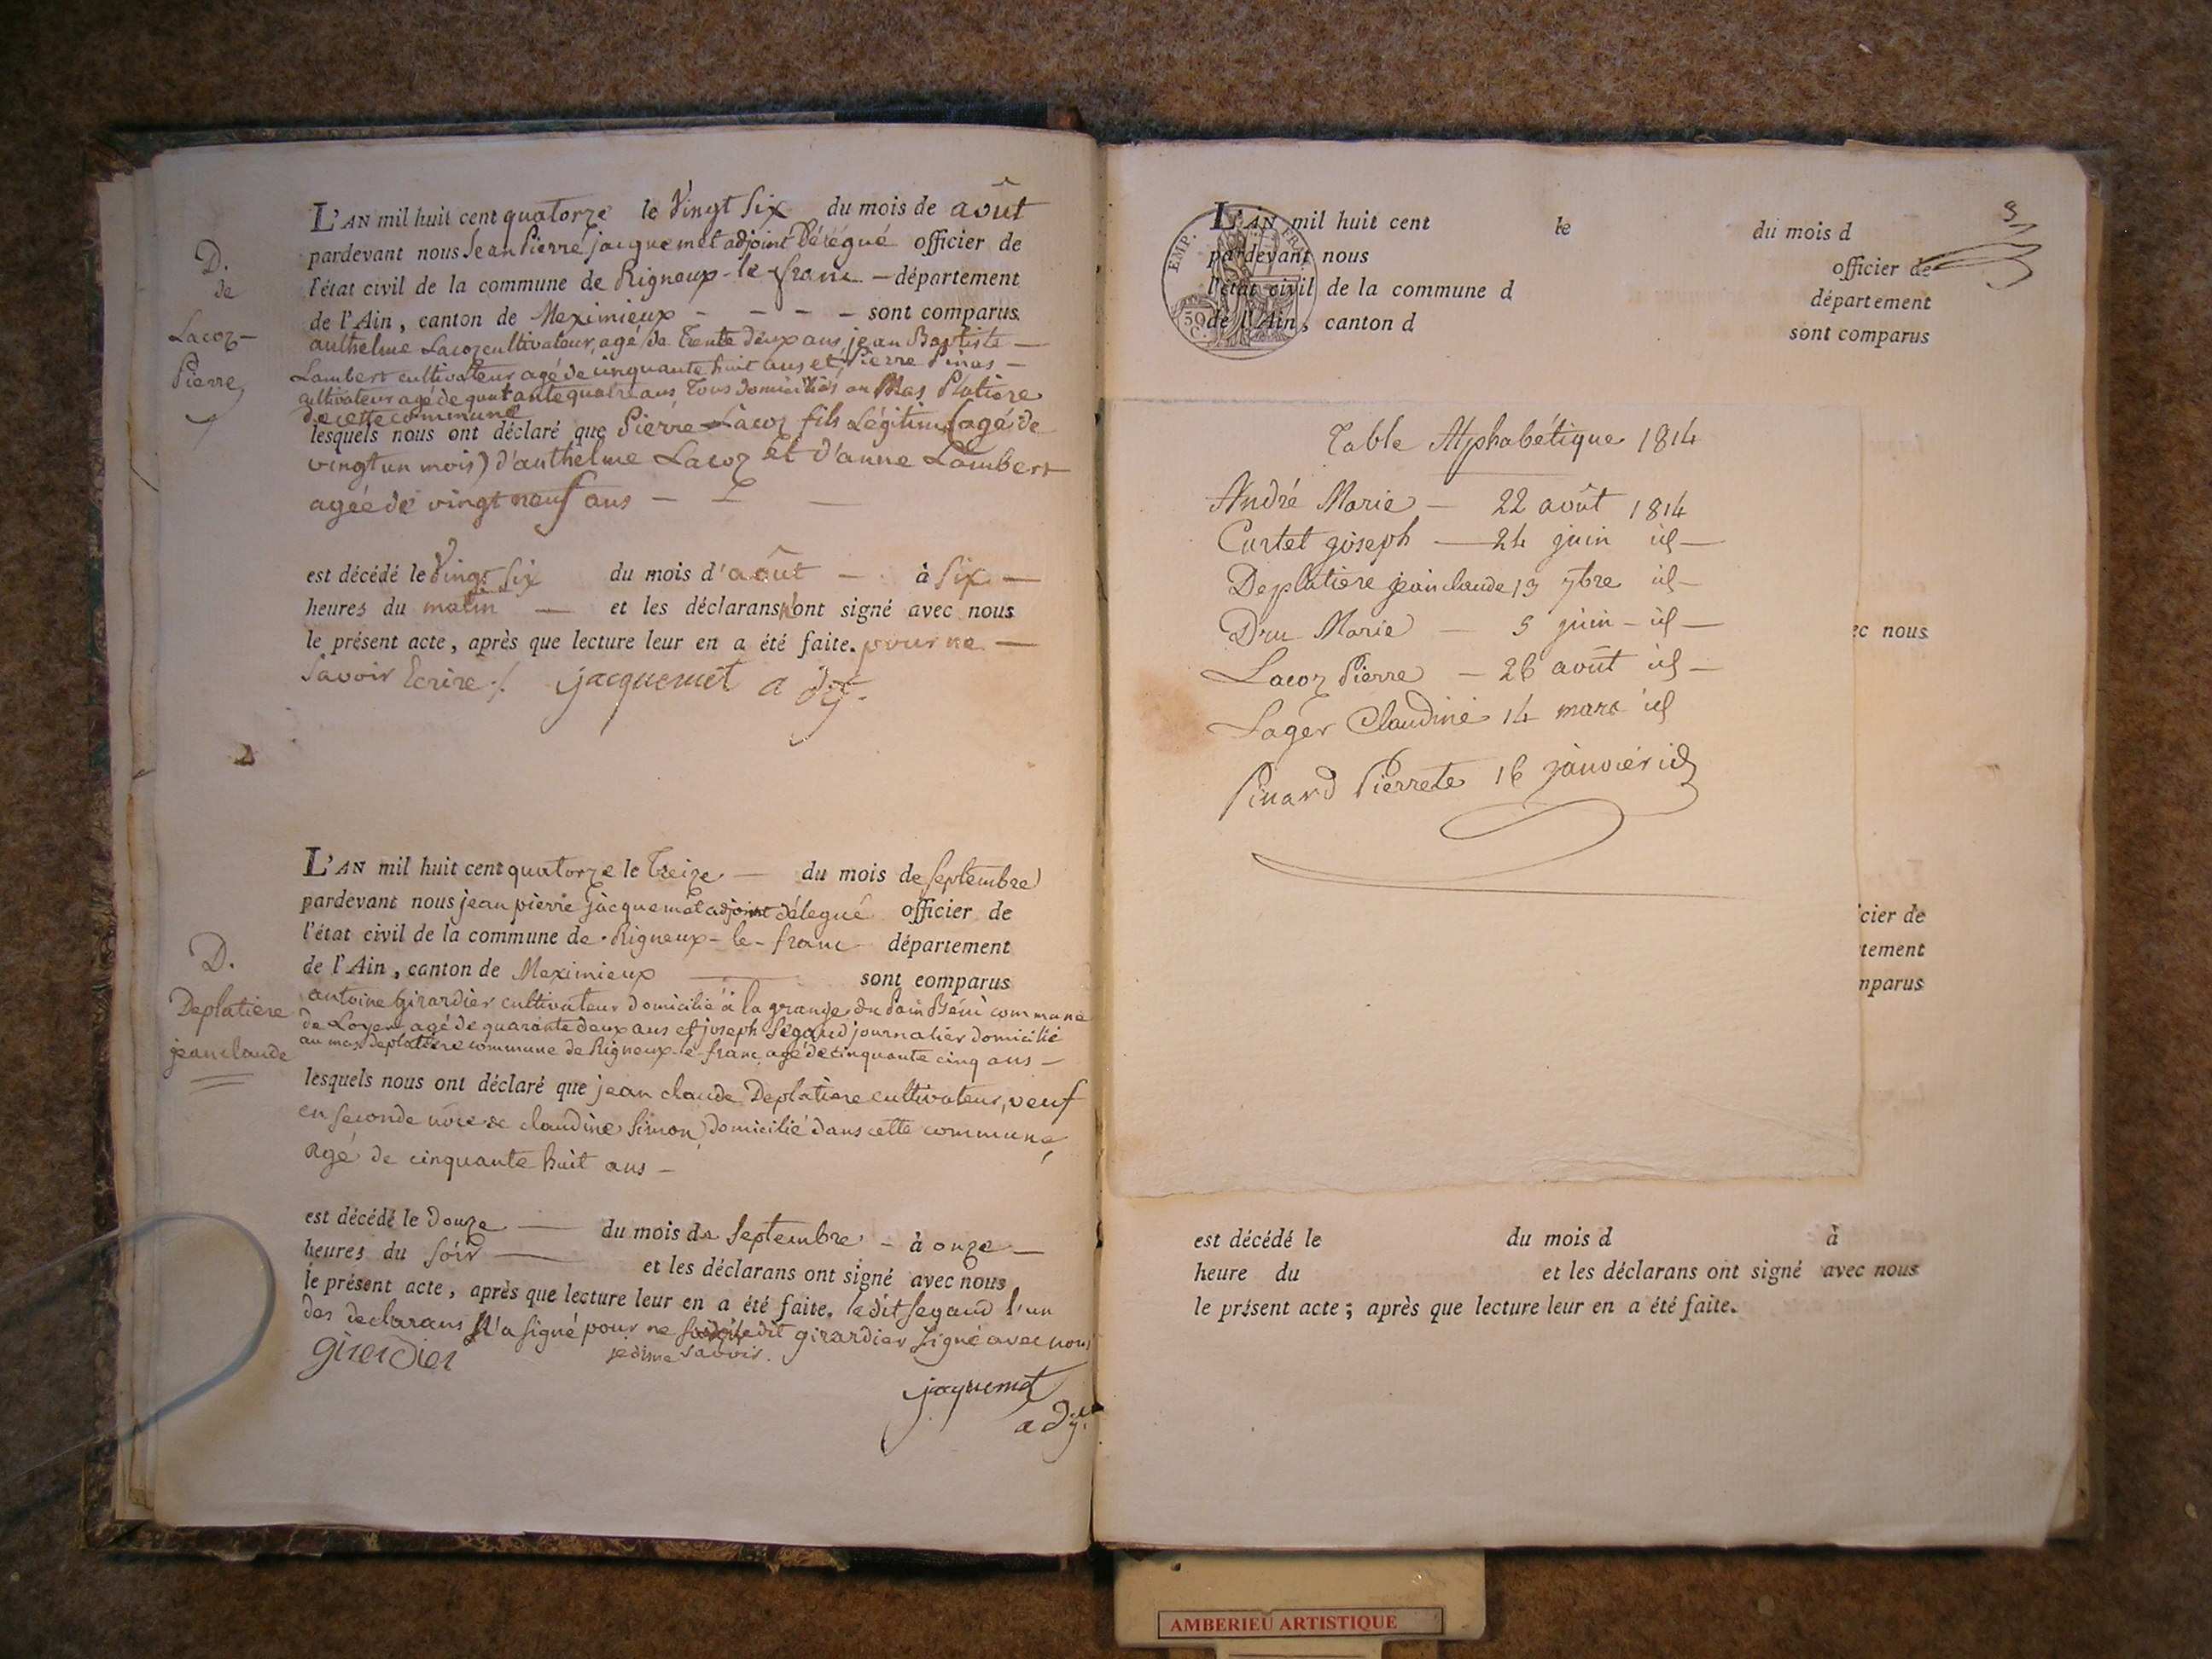 L'AN mil huit cent quatorze le Vingt Six du mois de août
pardevant nous Jean Pierre jacquemet adjoint Délégué officier de
l'état civil de la commune de Rigneux-le-franc — département
de l'Ain, canton de Meximieux - - - - sont comparus
D.
de
Lacoz-
Pierre
anthelme Lacoz cultivateur, agé de Trente deux ans, jean Baptiste —
Lambert cultivateur agé de cinquante huit ans et Pierre Pinas —
cultivateur agé de quatre ans Tous domiciliés au Mas Platiere
de cette commune
lesquels nous ont déclaré que Pierre Lacoz fils Légitime (agé de
vingt un mois) d'anthelme Lacoz et d'anne Lambert
agée de vingt neuf ans — —
est décédé le Vingt Six du mois d'août — à Six —
heures du matin — et les déclarans n'ont signé avec nous
le présent acte, après que lecture leur en a été faite. pour ne —
Savoir Ecrire /. jacquemet adj.
L'AN mil huit cent quatorze le Treize — du mois de Septembre
pardevant nous jean pierre jacquemet adjoint délegué officier de
l'état civil de la commune de Rigneux-le-franc département
de l'Ain, canton de Meximieux — sont comparus
D.
Deplatiere
jean claude
antoine Girardier cultivateur domicilié à la grange du Pain Béni commune
de Loyes agé de quarante deux ans et joseph Segaud journalier domicilié
au mas Deplatiere commune de Rigneux-le-franc agé de cinquante cinq ans —
lesquels nous ont déclaré que jean claude Deplatiere cultivateur, veuf
en seconde noce de claudine Simon, domicilié dans cette commune,
agé de cinquante huit ans —
est décédé le Douze — du mois de Septembre - à onze —
heures du Soir — et les déclarans ont signé avec nous
le présent acte, après que lecture leur en a été faite. ledit Segaud l'un
des declarans N'a signé pour ne ledit girardier signé avec nous
savoir.
girerdier
jaquemet
adj.
L'AN mil huit cent le du mois d
pardevant nous officier de
l'état civil de la commune d département
de l'Ain, canton d sont comparus
EMP. FRA
50
C.
Table Alphabétique 1814
André Marie — 22 août 1814
Curtet joseph — 24 juin id —
Deplatiere jean claude 13 7bre id —
Dru Marie — 5 juin - id —
Lacoz Pierre — 26 août id —
Lager Claudine 14 mars id
Pinard Pierrete 16 janvier id
ec nous
cier de
tement
mparus
est décédé le du mois d à
heure du et les déclarans ont signé avec nous
le présent acte ; après que lecture leur en a été faite.
AMBERIEU ARTISTIQUE